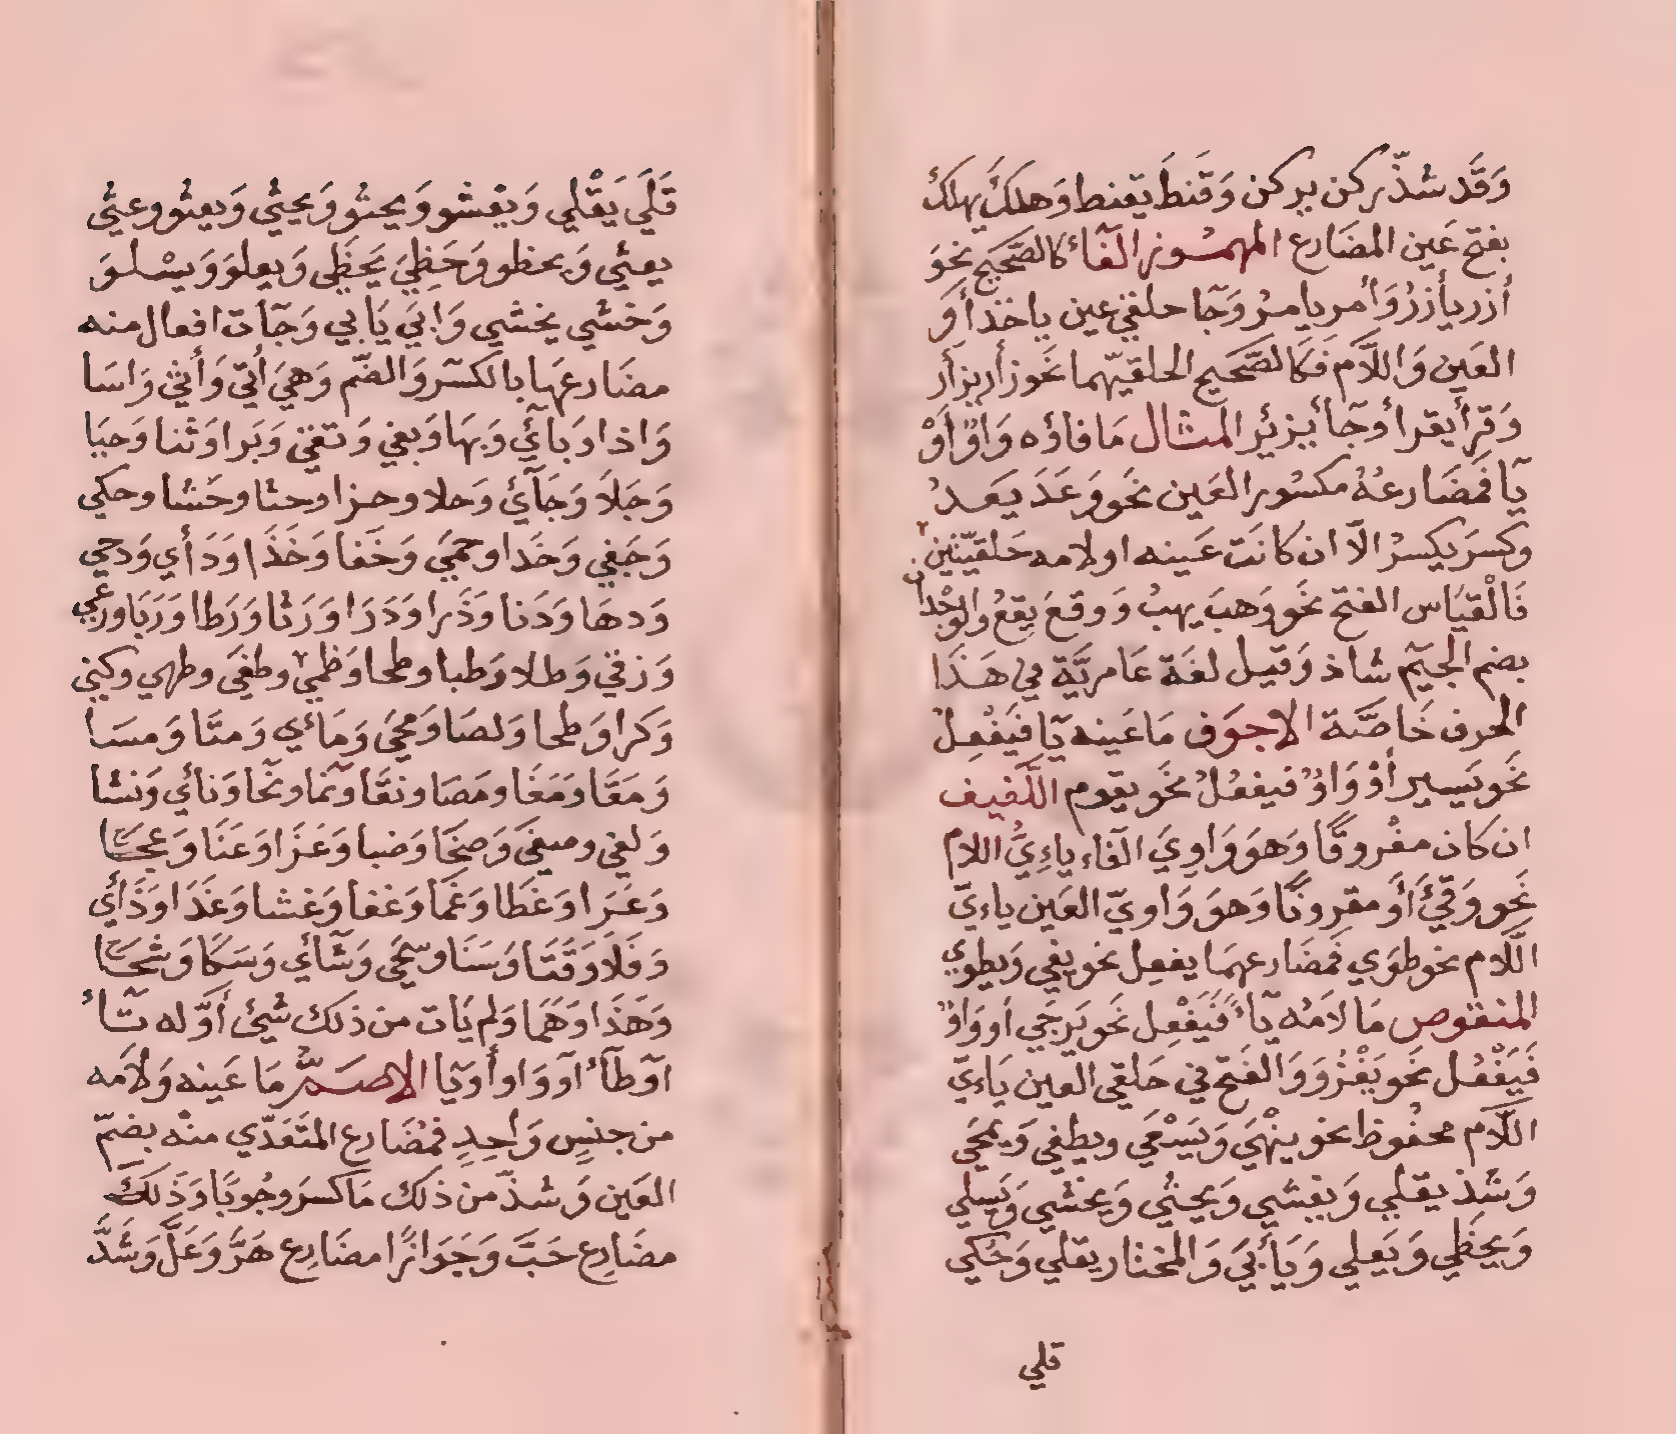 وَقَد شذّ ركن يركن وَقَنطَ يقنط وَهلكَ يهلك
بفتح عَين المضَارع المهمُوز الفَاء كالصَّحيح نحوَ
أزر يأزرُ وَأمر يامرُ وَجَا حلقي عين ياخذ أو
العَين وَاللَّام فَكَالصَّحيح الحلقيّهما نحَو زأر يزأر
وَقرأ يقرأ وجَا أيزئر المثال مَا فاؤه وَاوٌ أوْ
يَا فمضَارعُهُ مكسُور العَين نحَو وَعَدَ يَعدُ
وكسرَ يكسرُ الّا ان كانت عَينه او لامه حَلقيّتين
فَالْقيَاس الفتح نحَو وَهبَ يهبُ وَوقعَ يقعُ والوْجدان
بضم الجيم شاذ وَقيل لغَة عَامريَّة في هَذَا
الحرف خَاصَّة الاجوَف مَا عَينه يَا فَيَفْعِلُ
نحَو يَسير أوْ وَاوٌ فيفعُلُ نحَو يقوم اللَّفيف
ان كان مفْروقًا وَهوَ وَاويَ الفَاء ياءِيَّ اللام
نحَو وَقيَ أوَ مقرونًا وَهوَ وَاويّ العَين ياءيّ
اللَّام نحو طوَي فمضَارعهمَا يفعِل نحو يفي وَيطوي
المنقوص مَا لامُه يَاءً فَيَفْعِل نحَو يَرجَي أو وَاوٌ
فَيَفْعُل نحَو يَغْزُوَ وَالفَتح في حَلقي العين يَاءيّ
اللَّام محفُوظ نحو ينْهَيَ وَيَسْعَي ويطغي وَيمحَي
وَشَذ يقلي وَيغشي وَيحثي وَيخشي وَيَسلي
وَيحظَي وَيَعلي وَيَأبَيَ وَالمختار يقلي وَحُكي
قلي
قَلَي يَقْلي وَيغشو وَيحثو وَيحثي وَيعثو وعثي
يعثي وَيحظو وَحَظِيَ يَحَظَي وَيعلوَ وَيسْلوَ
وَخشي يخشي وَابيَ يَابي وَجَآت افعال منه
مضَارعهَا بالكسر وَالضّم وَهيَ أتيَ وَأثي وَاسَا
وَاذا وَبَآئي وَبهَا وَبغي وَتغي وَبَرا وَثنا وَجبَا
وَجَلاَ وَجَآئي وَحلا وحزا وحثا وحَشا وحكي
وَجَفي وَحَدا وحميَ وَخَفا وَخَذَا وَدَأي وَدحي
وَدهَا وَدَنا وَذَرا وَدَرَا وَرَثا وَرَطا وَرَبَا ورعي
وَزقي وَطلا وَطبا وطحا وَظمي وطغيَ وطهي وكني
وَكرا وَطحا وَلصَا وَمحيَ وَمَاءي وَمتَا وَمسَا
وَمَقَا وَمَغَا ومَصَا ونقَا وَنمَا ونحَا وَنائي وَنشا
وَلغي وصغيَ وَصخَا وَضبا وَعَزَا وَعَنَا وَعجَا
وَعَرَا وَغَطَا وَغَمَا وَغفا وَغشا وَغَذَا وَذَأي
وَفَلَا وَقَتَا وَسَنَا وَسحَي وَشَآئي وَسَكَا وَشحَا
وَهَذَا وَهَمَا وَلم يَات من ذلك شيئ أوَّله تَاءٌ
اوَ طَآءٌ اوَ وَاو أوَ يَا الاصَمّ مَا عَينه وَلامَه
من جنسٍ وَاحِدٍ فمُضَارع المتَعَدّي منْه بضَمّ
العَين وَشذّ من ذلك مَا كسرَ وجُوبًا وَذَلكَ
مضَارع حَبَّ وَجَوَازًا مضَارع هَرَّ وَعَلَّ وَشَدَّ